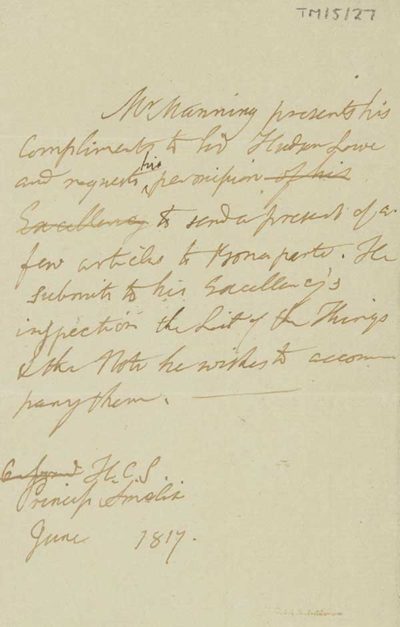 TM/5/27
Mr Manning presents his
Compliments to Sir Hudson Lowe
and requests his permission of his
Excellency to send a present of a
few articles to Bonaparte. He
submits to his Excellency's
inspection the List of the Things
& the Note he wishes to accom
pany them.
H.C.S.
Princess Amelia
June 1817.